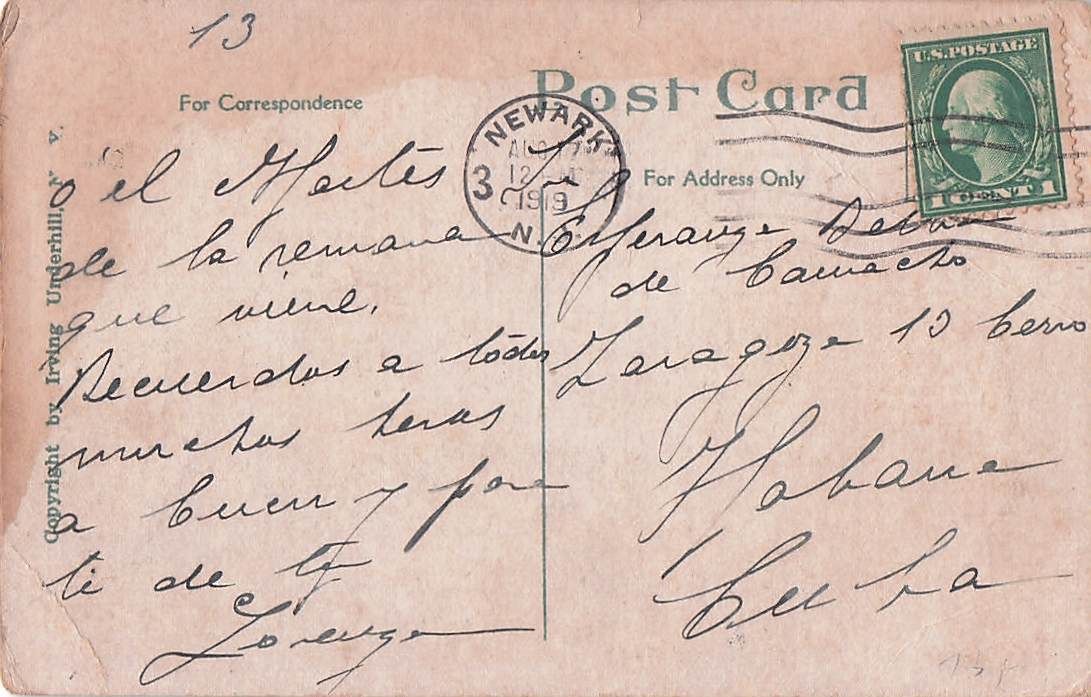 13
Post Card
For Correspondence
For Address Only
U.S. POSTAGE
1 CENT 1
NEWARK
AUG 17
12
1919
N.
3
Copyright by Irving Underhill, N. Y.
o el Martes
de la semana
que viene.
Recuerdos a todos
muchos besos
a Cucu y para
ti de tu
Lorenzo
Esperanza
de Camacho
Zaragoza 13 Cerro
Habana
Cuba